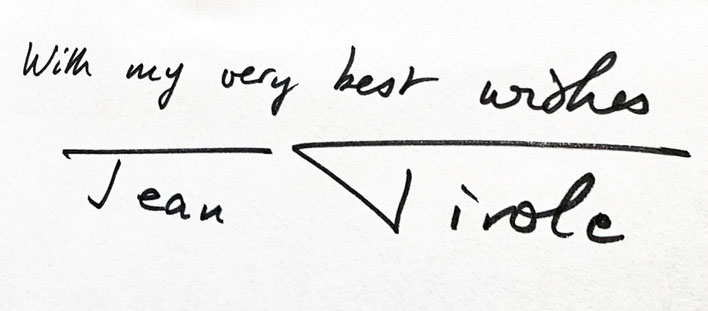 With my very best wishes
Jean Tirole